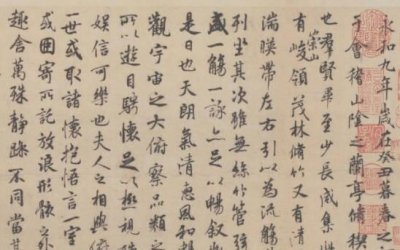 永和九年歲在癸丑暮春之
于會稽山陰之蘭亭脩禊
也群賢畢至少長咸集此
崇山
有峻領茂林脩竹又有清
湍暎帶左右引以為流觴
列坐其次雖無絲竹管弦
盛一觴一詠亦足以暢叙
是日也天朗氣清惠風和暢
觀宇宙之大俯察品類之
所以遊目騁懷足以極視聽
娛信可樂也夫人之相與俯
一世或取諸懷抱悟言一室
或因寄所託放浪形骸之外
趣舍萬殊靜躁不同當其